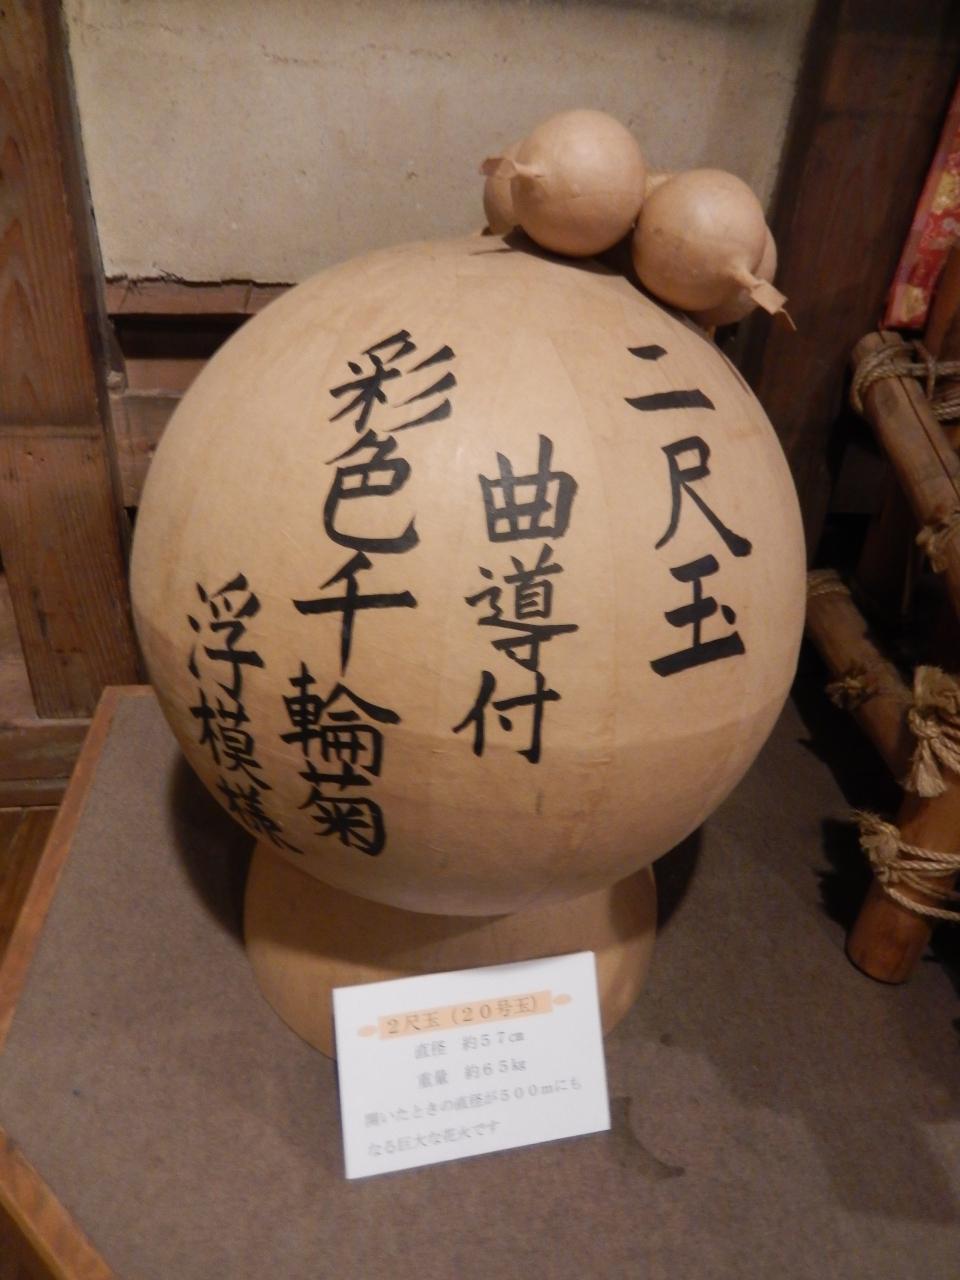 二尺玉
曲導付
彩色千輪菊
浮模様
２尺玉（２０号玉）
直径　約５７㎝
重量　約６５㎏
開いたときの直径が５００ｍにも
なる巨大な花火です